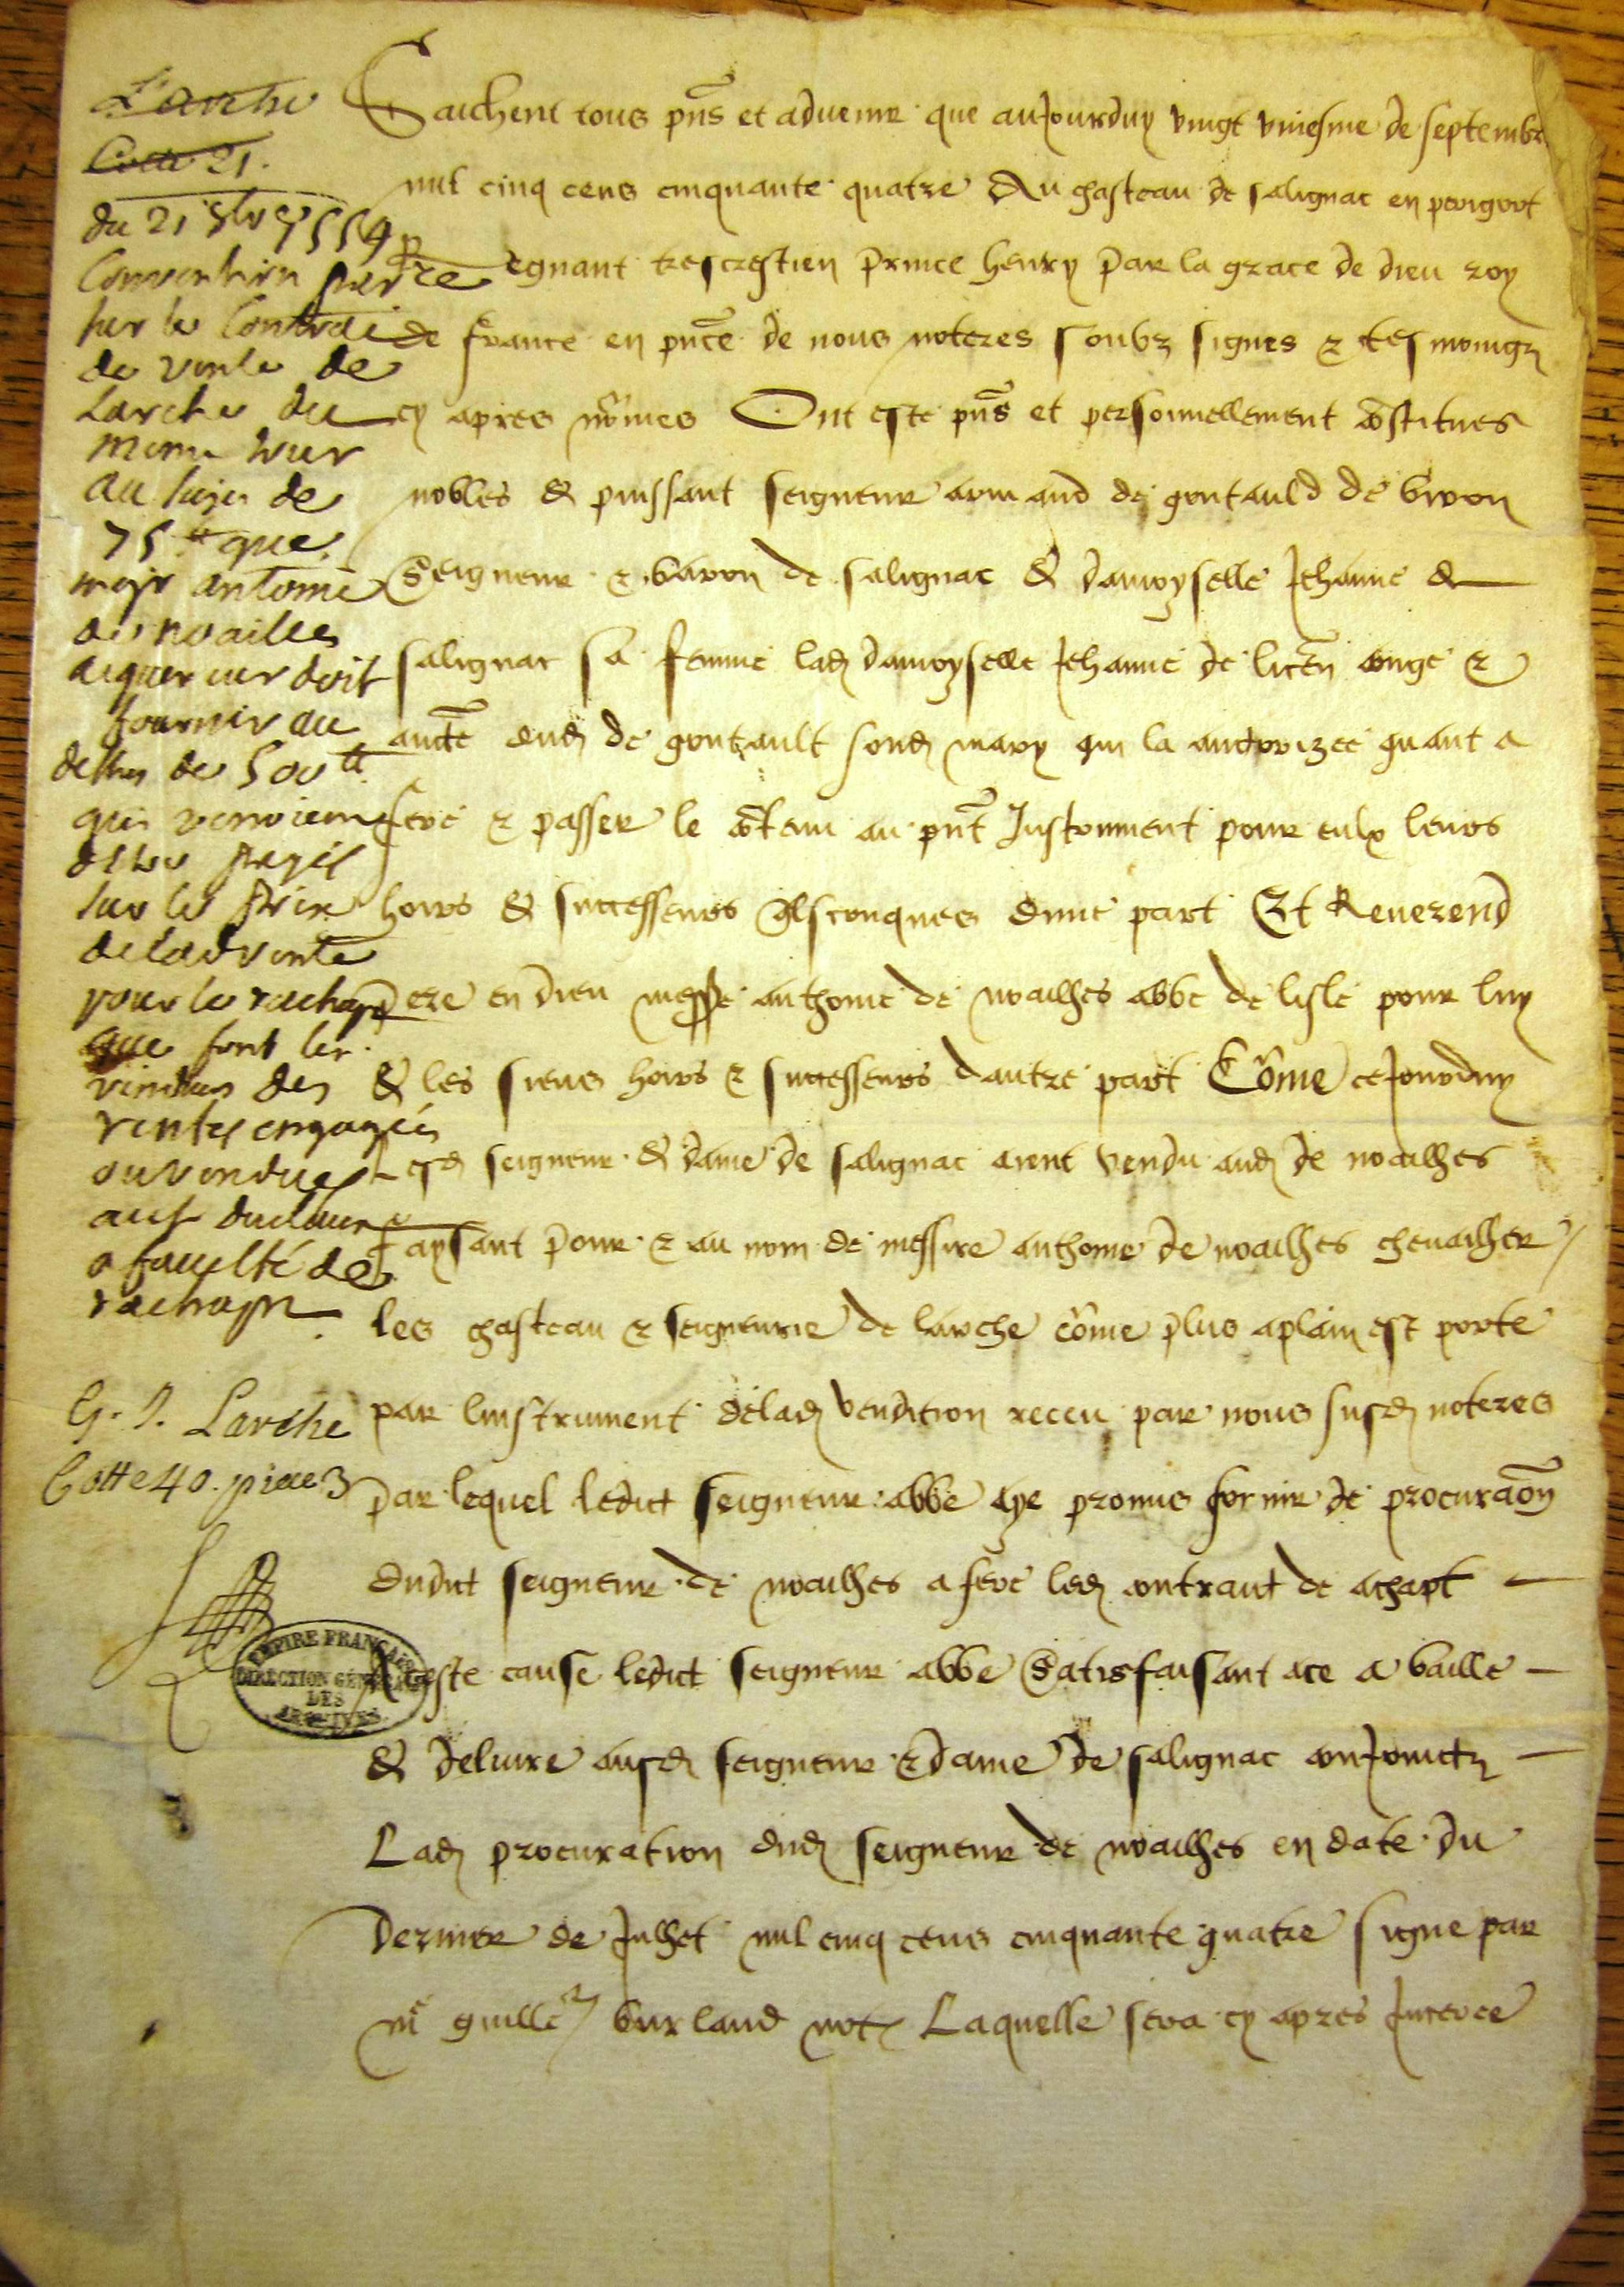 Larche
Cotte 21.
du 21 7bre 1554
Convention
sur le Contrat
de vente de
Larche du
meme iour
au sujet de
75 ₶ que
messr antoine
de noailles
aquereur doit
fournir au
dessus de 500 ₶
qui
sur le prix
de lad vente
pour le rachapt
que font les
vendeurs des
rentes engagées
ou vendues
a faculté de
rachapt.
G. I. Larche
Cotte 40. piece 3
EMPIRE FRANÇAIS
DIRECTION GÉNÉRALE
DES
ARCHIVES
Saichent tous pñs et advenir que auJourduy vingt uniesme de septembr
mil cinq cens cinquante quatre Au chasteau de salignac en perigort
Regnant trescrestien prince henry par la grace de dieu roy
de france en pñce de nous noteres soubz signes & tesmoings
cy apres nõmes Ont este pñs et personnellement cõstitues
nobles & puissant seigneur armand de gontauld de biron
Seigneur & baron de salignac & damoyselle Jehanne de
salignac sa femme lad damoyselle Jehanne de licẽn conge &
aucte dud de gontault sond mary qui la auctorizee quant a
fere & passer le cõtenu au pñt Instrument pour eulx leurs
hoirs & successeurs qlsconques dune part Et Reverend
pere en dieu messe anthoine de noailhes abbe de lisle pour luy
& les siens hoirs & successeurs dautre part Cõme ceJourduy
lesd seigneur & dame de salignac aient vendu aud de noailhes
faysant pour & au nom de messire anthoine de noailhes chevailher
les chasteau & seigneurie de larche cõme plus aplain est porte
par linstrument delad vendition receu par nous susd noteres
par lequel ledict seigneur abbe aye promis fornir de procuraõn
dudict seigneur de noailhes a fere led contraut de achapt
A ceste cause ledict seigneur abbe Satisfaisant ace a baille
& delivre ausd seigneur & dame de salignac conJoinctz
Lad procuration dud seigneur de noailhes en date du
dernier de Julhet mil cinq cens cinquante quatre signe par
me guille burland not Laquelle sera cy apres Inceree